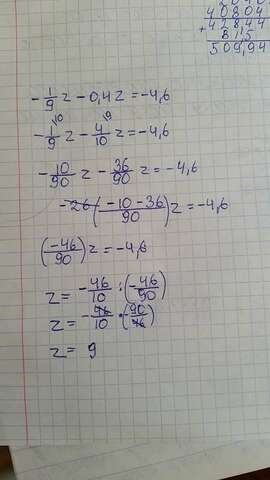 2040
40804
+ 42844
81,5
509,94
-1/9 z - 0,4 z = -4,6
-1/9 ¹⁰ z - 4/10 ⁹ z = -4,6
-10/90 z - 36/90 z = -4,6
(-10-36/90) z = -4,6
(-46/90) z = -4,6
z = -46/10 : (-46/90)
z = -46/10 · (90/46)
z = 9